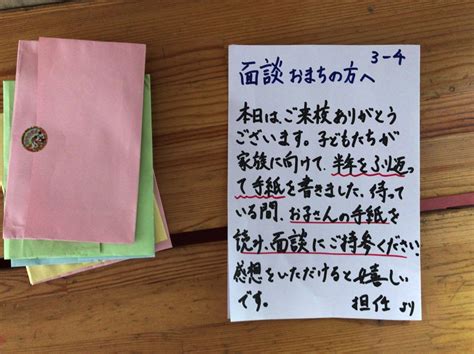 3-4
面談おまちの方へ
本日は、ご来校ありがとう
ございます。子どもたちが
家族に向けて、半年をふり返
って手紙を書きました。待って
いる間、お子さんの手紙を
読み、面談にご持参ください。
感想をいただけると嬉しい
です。 担任より